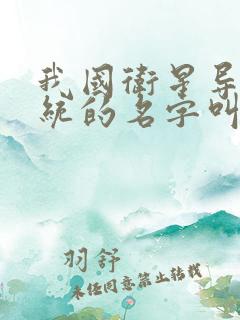 我國衛星导
統的名字叫
羽舒
未经同意禁止转载